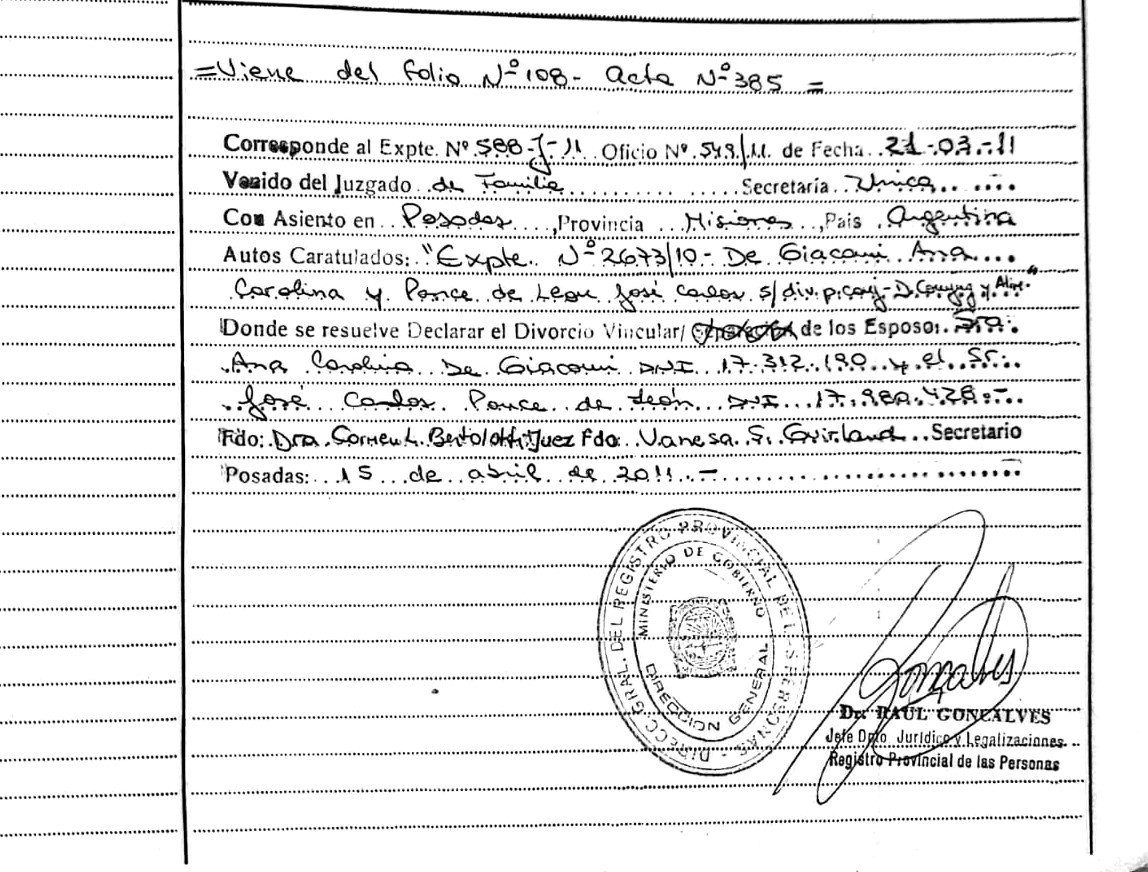 =Viene del folio Nº 108- acta Nº 385 =
Corresponde al Expte. Nº 588-J-11 Oficio Nº 549/11 de Fecha 21-03-11
Venido del Juzgado de Familia Secretaría Única
Con Asiento en Posadas, Provincia Misiones, País Argentina
Autos Caratulados: "Expte. Nº 2673/10- De Giacomi Ana
Carolina y Ponce de Leon José Carlos s/div.p.conj-D.Conyug y Alim."
Donde se resuelve Declarar el Divorcio Vincular/ de los Esposos
Ana Carolina De Giacomi DNI 17.312.190 y el Sr.
José Carlos Ponce de León DNI 17.980.428.-
Fdo: Dra. Carmen L. Bertolotti Juez Fdo: Vanesa S. Secretario
Posadas: 15 de abril de 2011.-
DIRECC. GRAL. DEL REGISTRO PROVINCIAL DE LAS PERSONAS -
MINISTERIO DE GOBIERNO
DIRECCION GENERAL
Gonçalves
Dr. RAUL GONCALVES
Jefe Dpto Jurídico y Legalizaciones
Registro Provincial de las Personas